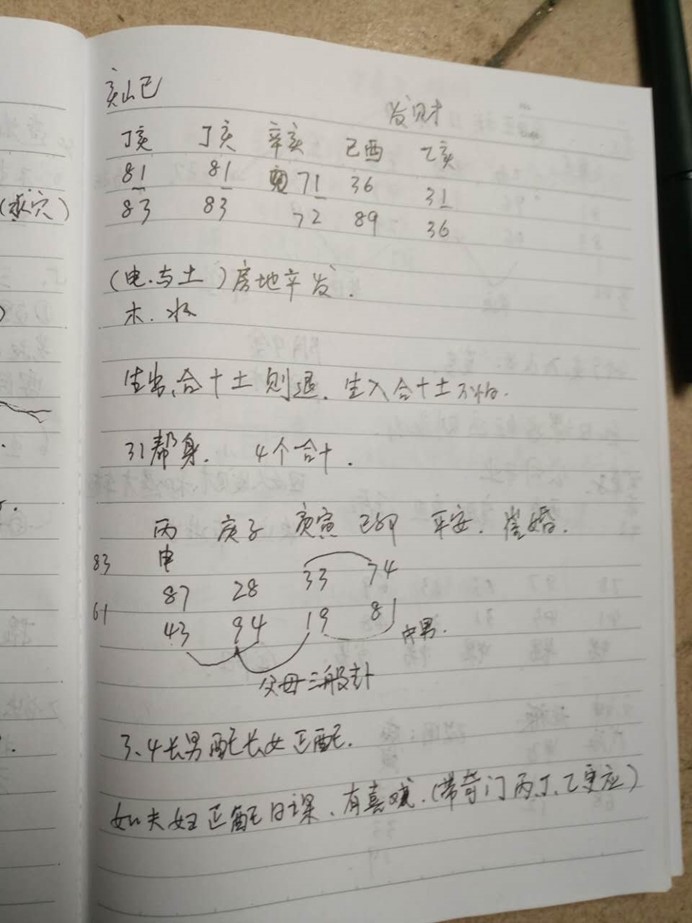 亥山巳
发财
丁亥 丁亥 辛亥 己酉 乙亥
81 81 71 36 31
83 83 72 89 36
(电与土)房地产发.
木.水
生出,合十土则退.生入合十土不怕.
31帮身. 4个合十.
丙申 庚子 庚寅 己卯 平安.催婚.
83 87 28 33 74
61 43 94 19 81 中男.
父母三般卦
3、4长男配长女正配.
如夫妇正配日课、有喜感.(带奇门丙、丁、乙更应)
(求穴)